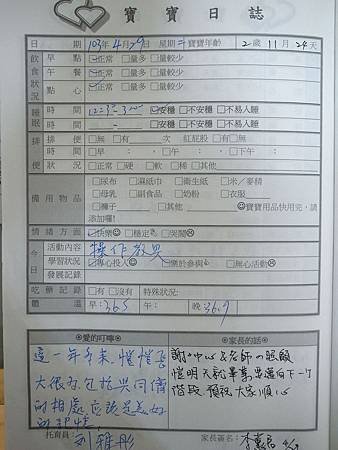 寶寶日誌
日 期 103年4月29日 星期二 寶寶年齡 2歲11月24天
飲食狀況
早 點 ☑正常 □量多 □量較少
午 餐 ☑正常 □量多 □量較少
點 心 ☑正常 □量多 □量較少
睡眠
時 間 ☑安穩 □不安穩 □不易入睡
時 間 □安穩 □不安穩 □不易入睡
排便狀況
排 便 □無 □有 次 紅屁股 □有□無
時 間 □早: □午: □下午:
便 狀 □正常 □硬 □軟 □稀 □其他
備用物品
□尿布 □濕紙巾 □衛生紙 □米/麥精
□母乳 □副食品 □奶粉 □衣服
□褲子 □其他 ☺寶寶用品快用完,請
添加喔!
情緒方面 ☑快樂☺ □穩定 □哭鬧
今日
活動內容 操作教具
學習狀況 □專心投入 ☑樂於參與 □無心活動
發展記錄
吃藥記錄 □有 □沒有 特殊狀況:
體 溫 早:36.5 午: 晚:36.7
愛的叮嚀
家長的話
這一年多來愷愷長
大很多包括與同儕
的相處應該是美好
的回憶
謝謝中心&老師的照顧
愷明天就畢業要邁向下一個
階段 預祝大家順心
托育員: 劉雅彤
家長簽名: